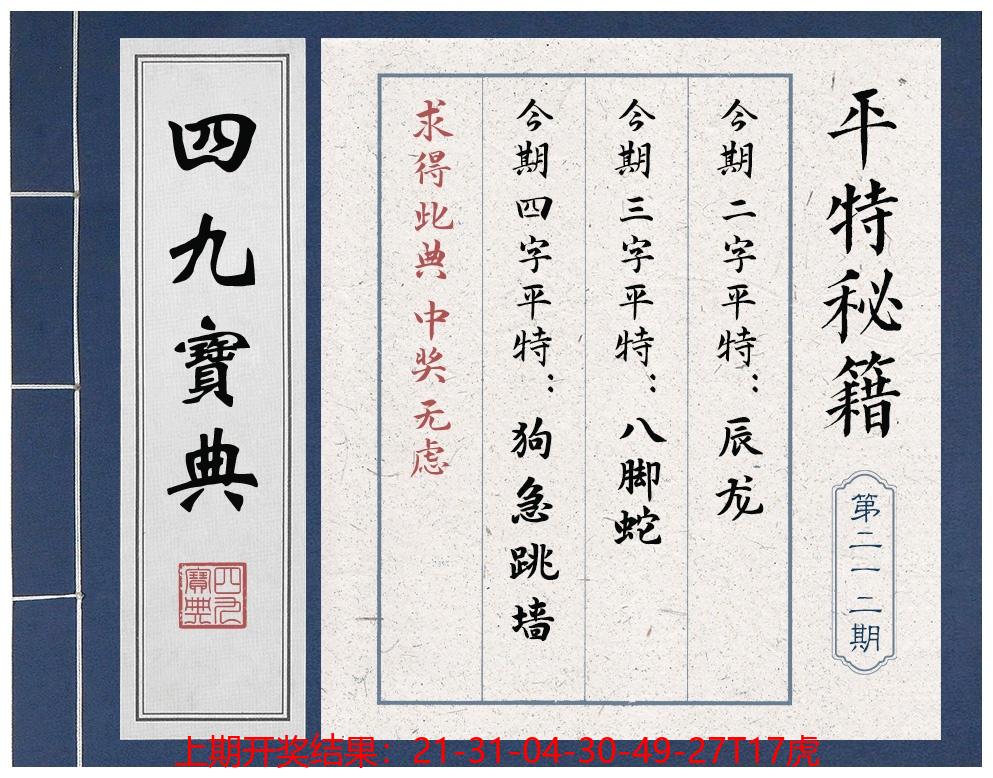 平特秘籍
第二一二期
今期二字平特：辰龙
今期三字平特：八脚蛇
今期四字平特：狗急跳墙
求得此典 中奖无虑
四九寶典
四九寶典
上期开奖结果：21-31-04-30-49-27T17虎